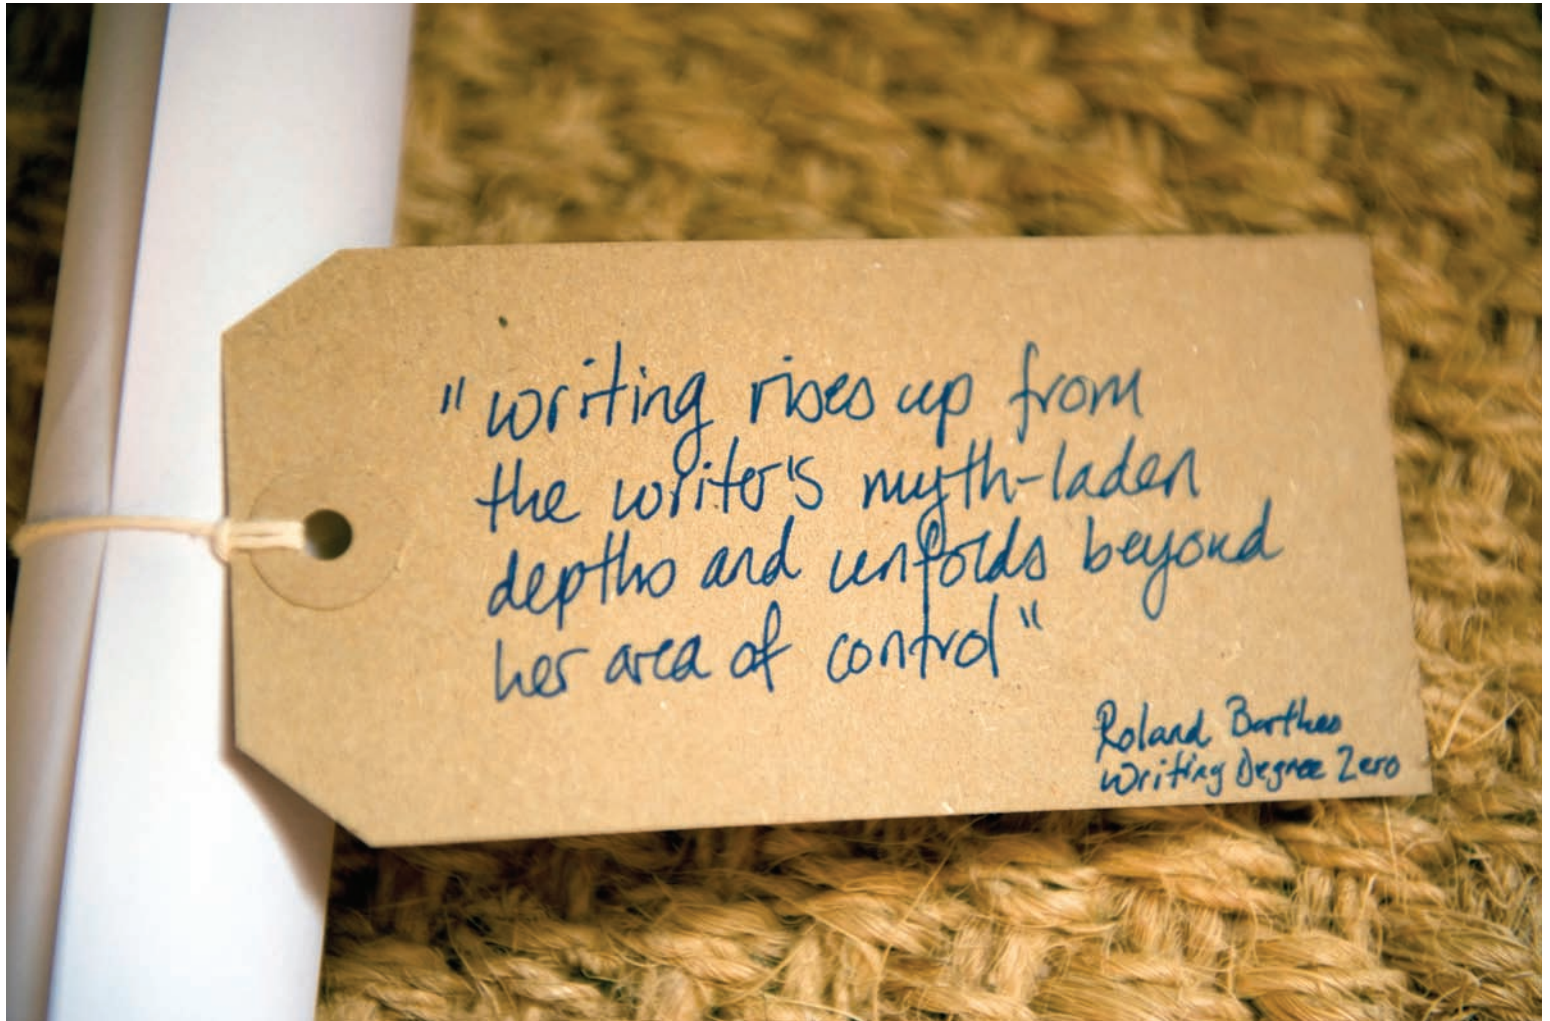 "writing rises up from
the writer's myth-laden
depths and unfolds beyond
her area of control"
Roland Barthes
Writing Degree Zero